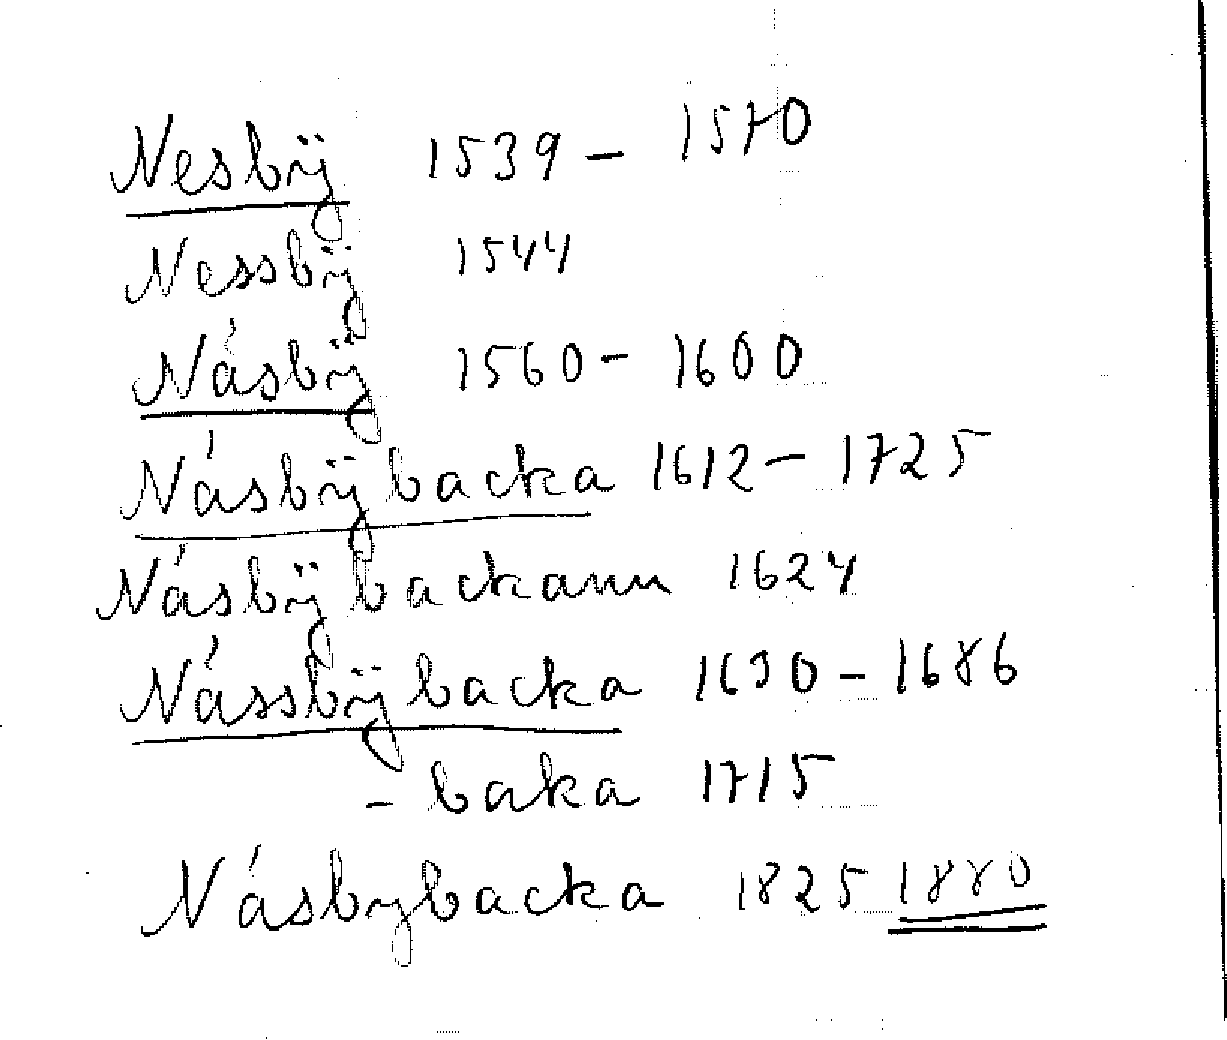 Nesbÿ 1539 - 1570
Nessbÿ 1544
Násbÿ 1560 - 1600
Násbÿbacka 1612 - 1725
Násbÿbackann 1624
Nássbÿbacka 1630 - 1686
- baka 1715
Násbybacka 1825 1880